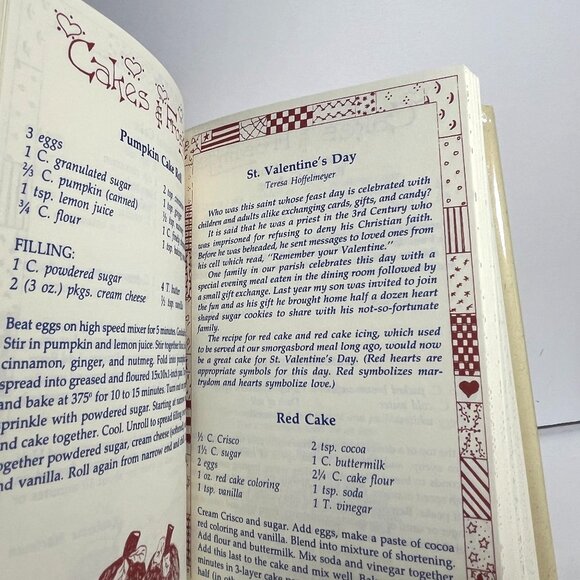 Cakes &
Pumpkin Cake
3 eggs
1 C. granulated sugar
⅔ C. pumpkin (canned)
1 tsp. lemon juice
¾ C. flour
2 tsp.
1 tsp.
FILLING:
1 C. powdered sugar
2 (3 oz.) pkgs. cream cheese
4 T.
½ tsp.
Beat eggs on high speed mixer for 5 minutes.
Stir in pumpkin and lemon juice. Stir together
cinnamon, ginger, and nutmeg. Fold into
spread into greased and floured 15x10x1-inch
and bake at 375° for 10 to 15 minutes. Turn out on
sprinkle with powdered sugar. Starting at
and cake together. Cool. Unroll to spread filling
together powdered sugar, cream cheese
and vanilla. Roll again from narrow end and
St. Valentine's Day
Teresa Hoffelmeyer
Who was this saint whose feast day is celebrated with
children and adults alike exchanging cards, gifts, and candy?
It is said that he was a priest in the 3rd Century who
was imprisoned for refusing to deny his Christian faith.
Before he was beheaded, he sent messages to loved ones from
his cell which read, "Remember your Valentine."
One family in our parish celebrates this day with a
special evening meal eaten in the dining room followed by
a small gift exchange. Last year my son was invited to join
the fun and as his gift he brought home half a dozen heart
shaped sugar cookies to share with his not-so-fortunate
family.
The recipe for red cake and red cake icing, which used
to be served at our smorgasbord meal long ago, would now
be a great cake for St. Valentine's Day. (Red hearts are
appropriate symbols for this day. Red symbolizes mar-
tyrdom and hearts symbolize love.)
Red Cake
½ C. Crisco
1½ C. sugar
2 eggs
1 oz. red cake coloring
1 tsp. vanilla
2 tsp. cocoa
1 C. buttermilk
2¼ C. cake flour
1 tsp. soda
1 T. vinegar
Cream Crisco and sugar. Add eggs, make a paste of cocoa
red coloring and vanilla. Blend into mixture of shortening.
Add flour and buttermilk. Mix soda and vinegar together
Add this last to the cake and mix well.
minutes in 3-layer cake
half (in